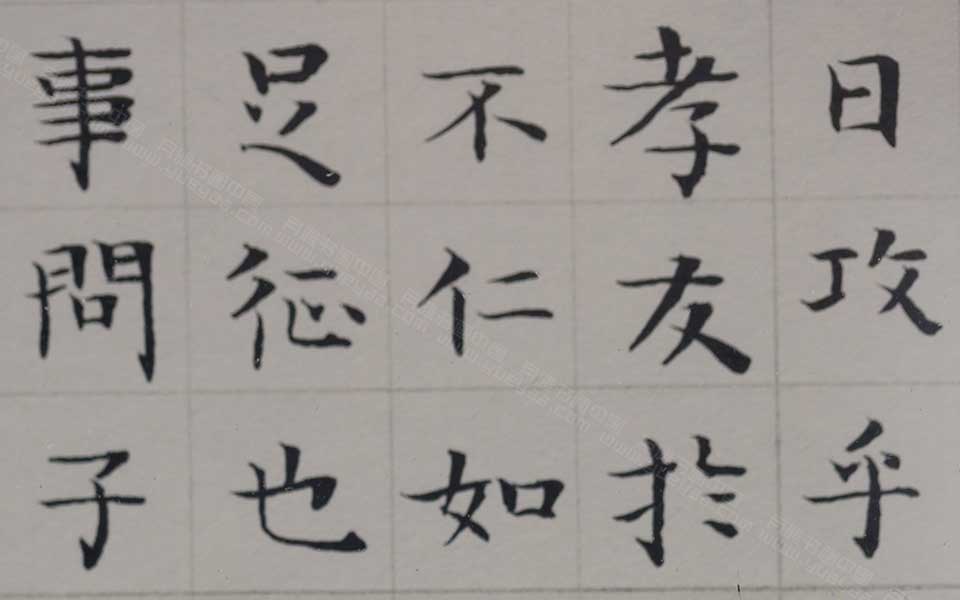 日攻乎
孝友於
不仁如
足征也
事問子